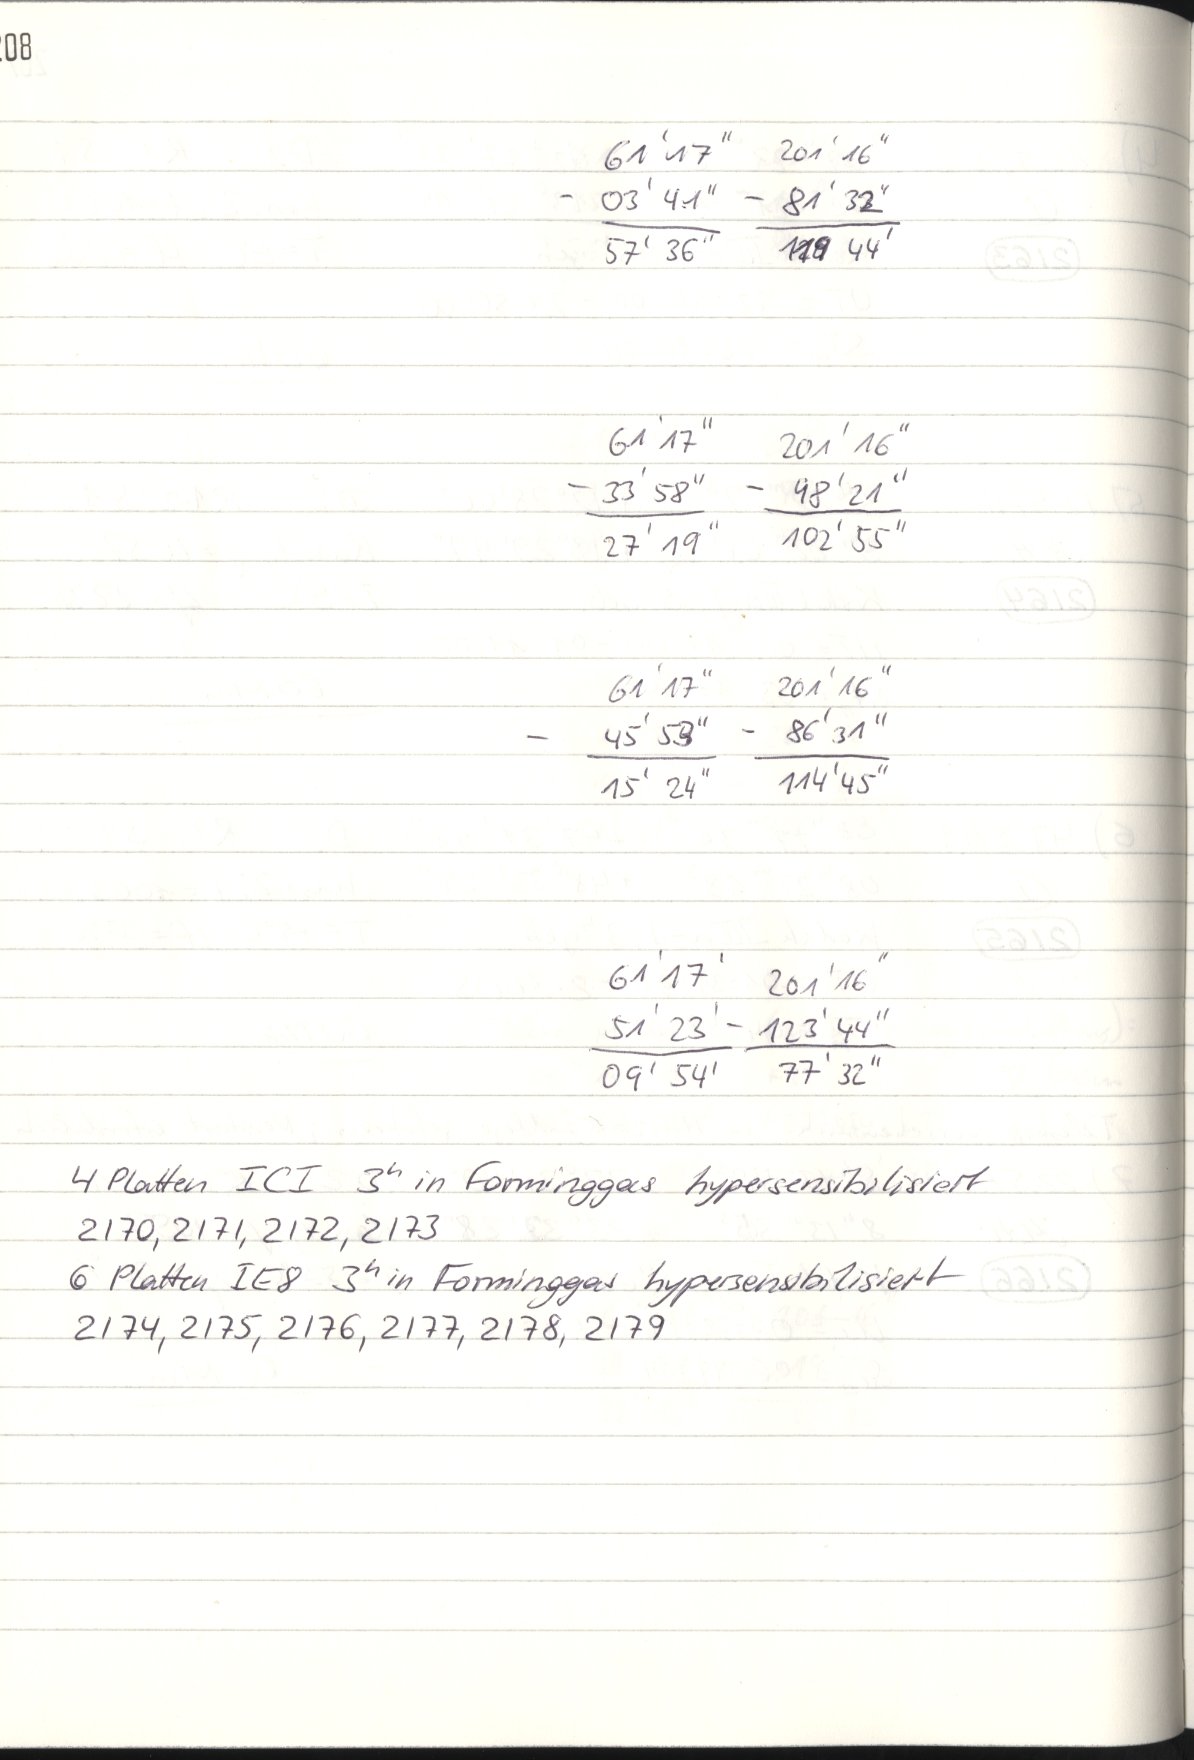 208
61' 17" 201' 16"
- 03' 41" - 81' 32"
57' 36" 119 44'
61' 17" 201' 16"
- 33' 58" - 48' 21"
27' 19" 102' 55"
61' 17" 201' 16"
- 45' 53" - 86' 31"
15' 24" 114' 45"
61' 17' 201' 16"
51' 23' - 123' 44"
09' 54' 77' 32"
4 Platten ICI 3h in Forminggas hypersensibilisiert
2170, 2171, 2172, 2173
6 Platten IE8 3h in Forminggas hypersensibilisiert
2174, 2175, 2176, 2177, 2178, 2179